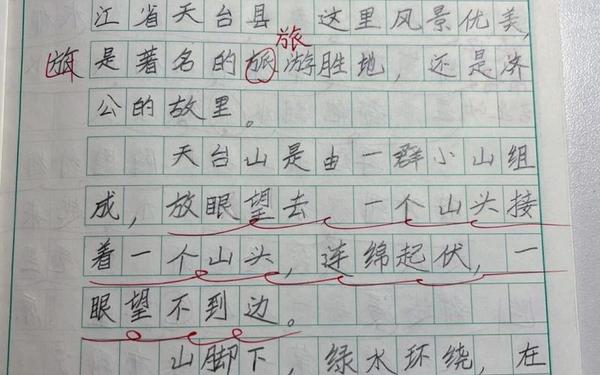 江省天台县 这里风景优美,
旅
旅 是著名的旅游胜地，还是济
公的故里。
天台山是由一群小山组
成，放眼望去 一个山头接
着一个山头，连绵起伏，一
眼望不到边。
山脚下，绿水环绕，在